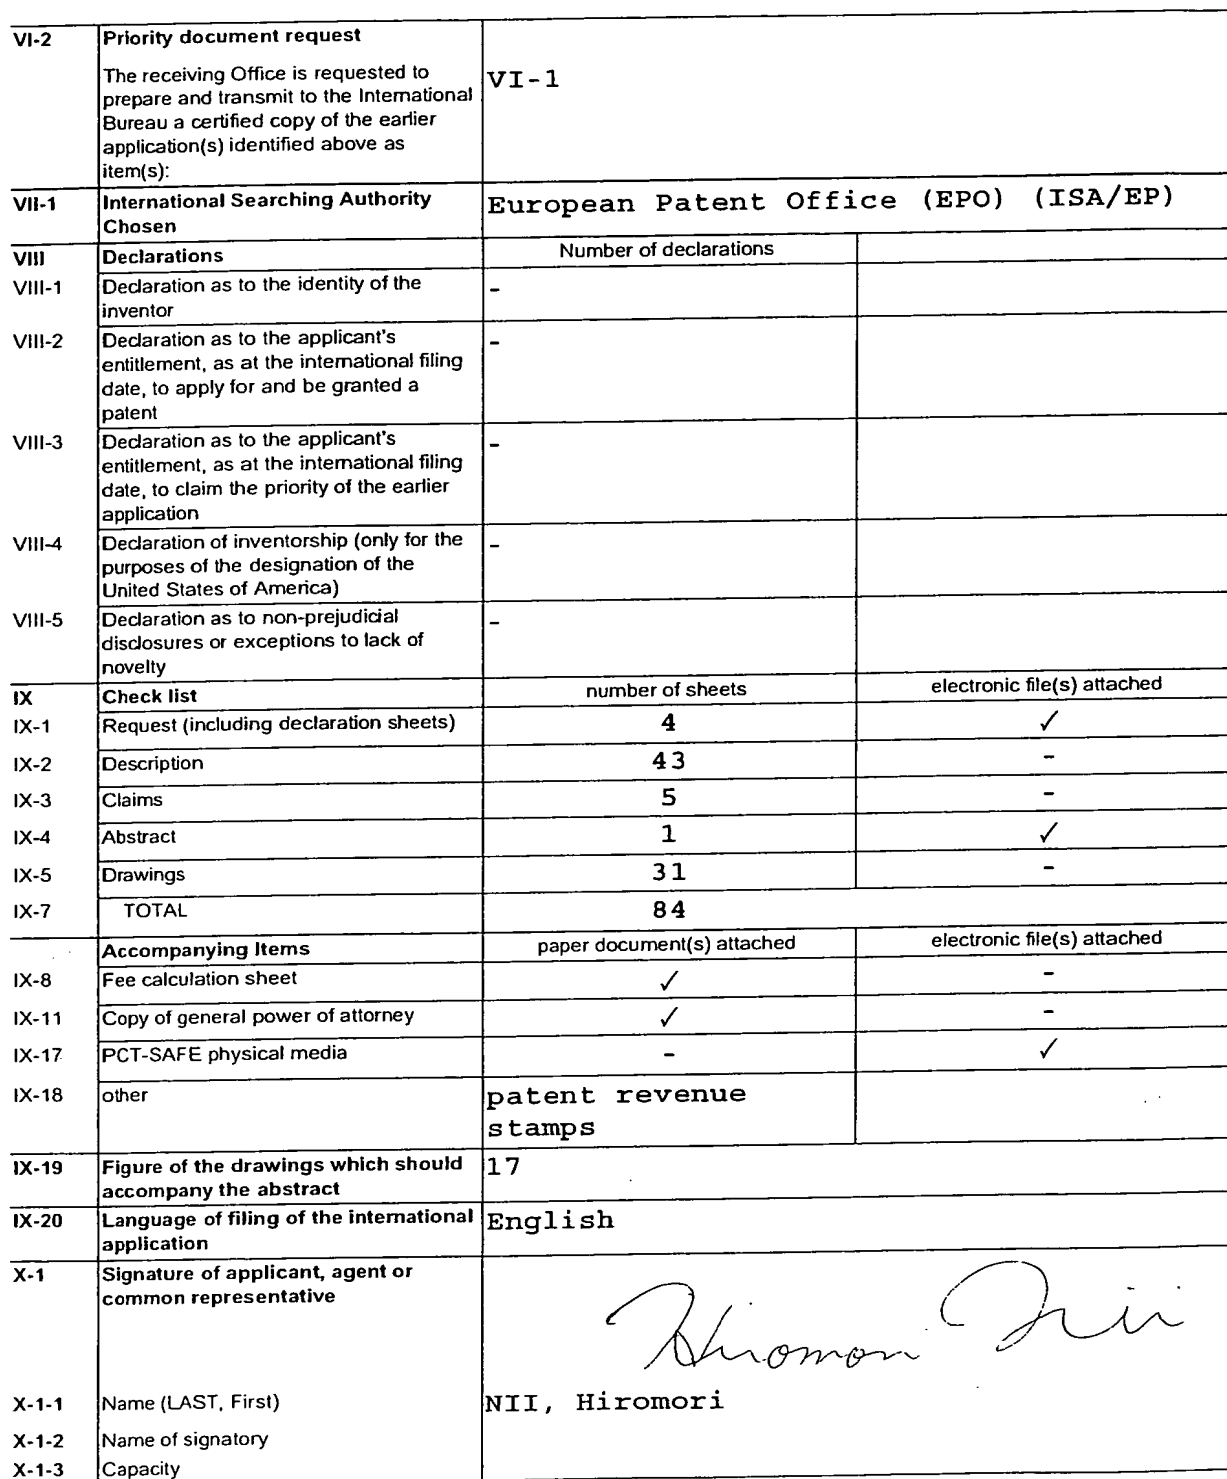 VI-2 Priority document request
The receiving Office is requested to
prepare and transmit to the International
Bureau a certified copy of the earlier
application(s) identified above as
item(s):
VI-1
VII-1 International Searching Authority
Chosen
European Patent Office (EPO) (ISA/EP)
VIII Declarations Number of declarations
VIII-1 Declaration as to the identity of the
inventor
-
VIII-2 Declaration as to the applicant's
entitlement, as at the international filing
date, to apply for and be granted a
patent
-
VIII-3 Declaration as to the applicant's
entitlement, as at the international filing
date, to claim the priority of the earlier
application
-
VIII-4 Declaration of inventorship (only for the
purposes of the designation of the
United States of America)
-
VIII-5 Declaration as to non-prejudicial
disclosures or exceptions to lack of
novelty
-
IX Check list number of sheets electronic file(s) attached
IX-1 Request (including declaration sheets) 4 ✓
IX-2 Description 43 -
IX-3 Claims 5 -
IX-4 Abstract 1 ✓
IX-5 Drawings 31 -
IX-7 TOTAL 84
Accompanying Items paper document(s) attached electronic file(s) attached
IX-8 Fee calculation sheet ✓ -
IX-11 Copy of general power of attorney ✓ -
IX-17 PCT-SAFE physical media - ✓
IX-18 other patent revenue
stamps
IX-19 Figure of the drawings which should
accompany the abstract
17
IX-20 Language of filing of the international
application
English
X-1 Signature of applicant, agent or
common representative
Hiromori Nii
X-1-1 Name (LAST, First) NII, Hiromori
X-1-2 Name of signatory
X-1-3 Capacity